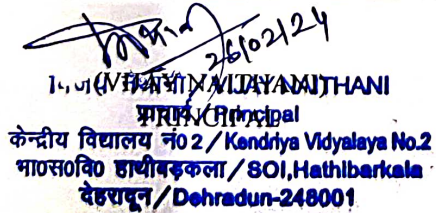 26/02/24
(VIJAY NAITHANI) VIJAY NAITHANI
प्राचार्य / Principal
PRINCIPAL
केन्द्रीय विद्यालय नं० 2 / Kendriya Vidyalaya No.2
भा०स०वि० हाथीबड़कला / SOI, Hathibarkala
देहरादून / Dehradun-248001